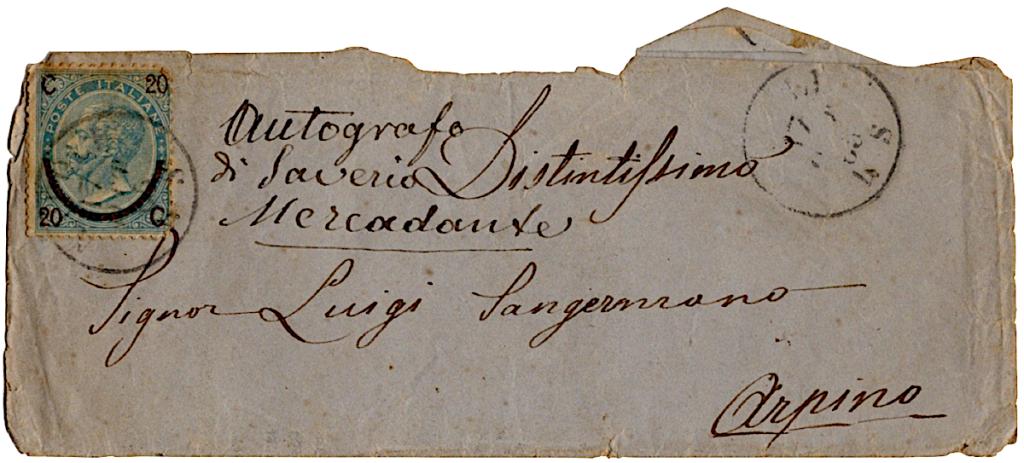 C 20
POSTE ITALIANE
20 C
Autografo
di Saverio
Mercadante
Distintissimo
Signor Luigi Sangermano
Arpino